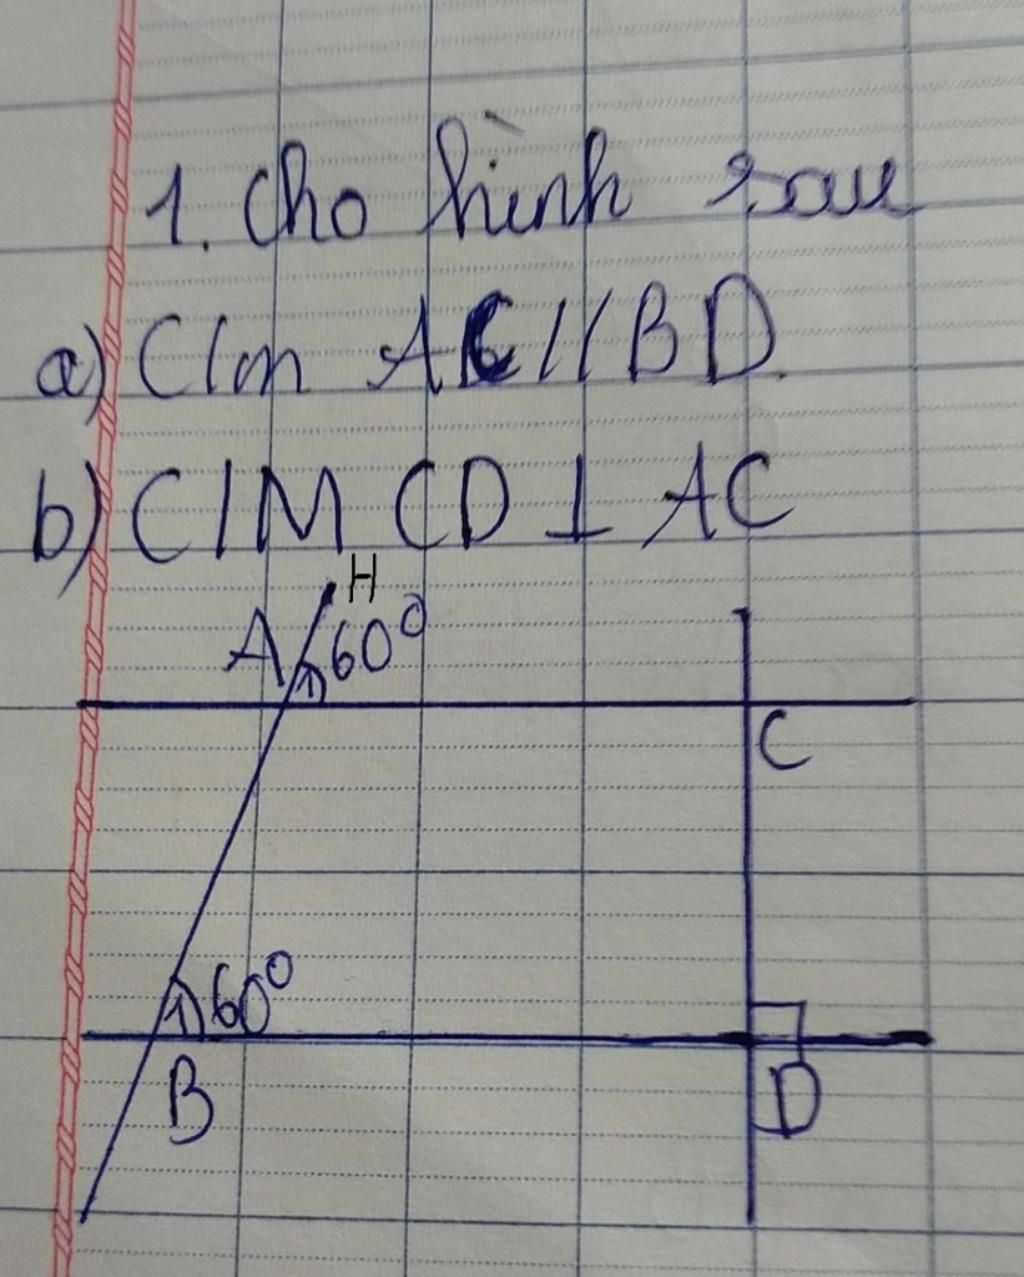 1. Cho hình sau
a) C/m AC//BD.
b) C/M CD ⊥ AC
H
A 1 60°
C
1 60°
B
D